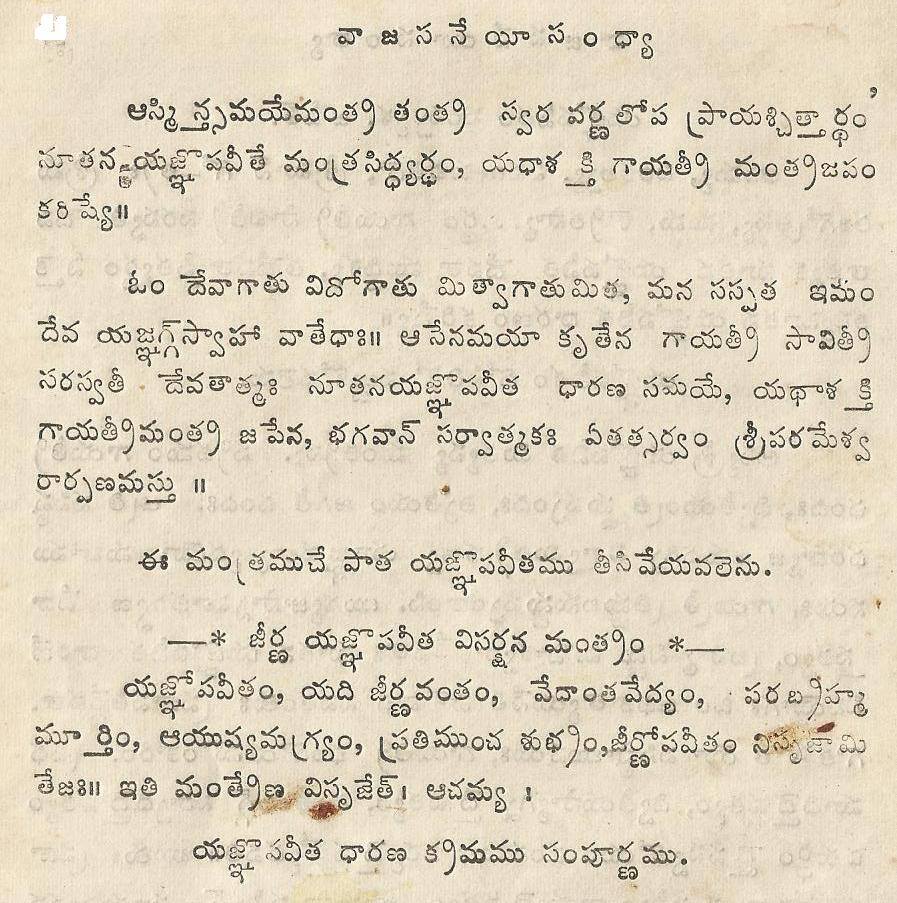 వాజసనేయీసంధ్యా
ఆస్మిన్త్సమయేమంత్ర తంత్ర స్వర వర్ణలోప ప్రాయశ్చిత్తార్థం
నూతన యజ్ఞొపవీతే మంత్రసిద్ధ్యర్థం, యధాశక్తి గాయత్రీ మంత్రజపం
కరిష్యే॥
ఓం దేవాగాతు విదోగాతు మిత్వాగాతుమిత, మన సస్పత ఇమం
దేవ యజ్ఞగ్గ్‌స్వాహా వాతేధాః॥ ఆసేనమయా కృతేన గాయత్రీ సావిత్రీ
సరస్వతీ దేవతాత్మః నూతనయజ్ఞొపవీత ధారణ సమయే, యథాశక్తి
గాయత్రీమంత్ర జపేన, భగవాన్ సర్వాత్మకః ఏతత్సర్వం శ్రీపరమేశ్వ
రార్పణమస్తు ॥
ఈ మంత్రముచే పాత యజ్ఞొపవీతము తీసివేయవలెను.
—* జీర్ణ యజ్ఞొపవీత విసర్జన మంత్రం *—
యజ్ఞోపవీతం, యది జీర్ణవంతం, వేదాంతవేద్యం, పరబ్రహ్మ
మూర్తిం, ఆయుష్యమగ్ర్యం, ప్రతిముంచ శుభ్రం,జీర్ణోపవీతం నిసృజామి
తేజః॥ ఇతి మంత్రేణ విసృజేత్। ఆచమ్య ।
యజ్ఞొపవీత ధారణ క్రమము సంపూర్ణము.